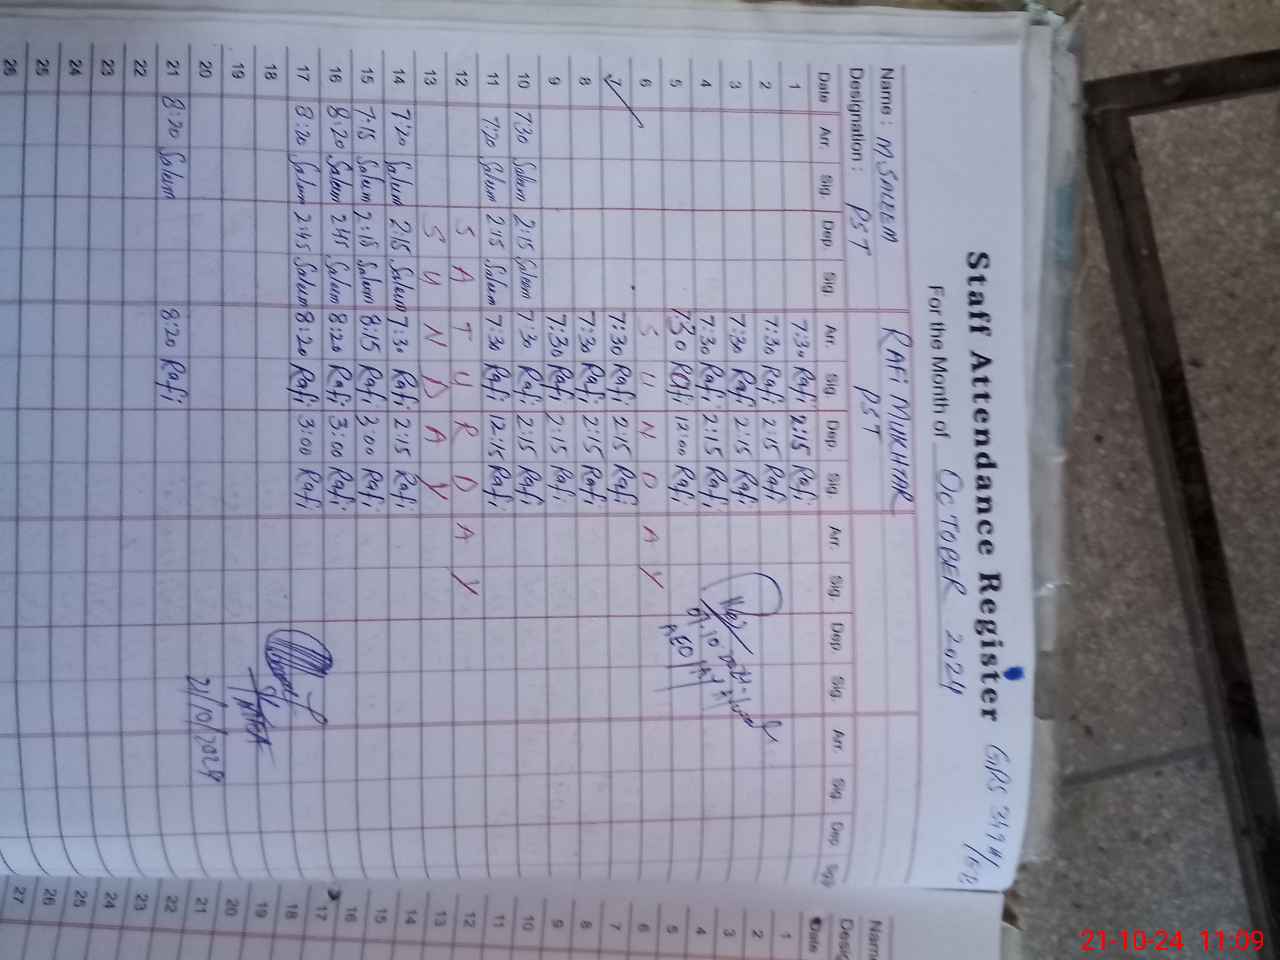 Staff Attendance Register GPS
For the Month of OCTOBER 2024
Name : M SALEEM RAFI MUKHTAR
Designation : PST PST
Date Arr. Sig. Dep. Sig. Arr. Sig. Dep. Sig. Arr. Sig. Dep. Sig. Arr. Sig. Dep. Sig.
1 7:30 Rafi 2:15 Rafi
2 7:30 Rafi 2:15 Rafi
3 7:30 Rafi 2:15 Rafi
4 7:30 Rafi 2:15 Rafi
5 7:30 Rafi 12:00 Rafi
6 S U N D A Y
7 7:30 Rafi 2:15 Rafi
8 7:30 Rafi 2:15 Rafi
9 7:30 Rafi 2:15 Rafi
10 7:30 Saleem 2:15 Saleem 7:30 Rafi 2:15 Rafi
11 7:20 Saleem 2:15 Saleem 7:30 Rafi 12:15 Rafi
12 S A T U R D A Y
13 S U N D A Y
14 7:20 Saleem 2:15 Saleem 7:30 Rafi 2:15 Rafi
15 7:15 Saleem 2:15 Saleem 8:15 Rafi 3:00 Rafi
16 8:20 Saleem 2:45 Saleem 8:20 Rafi 3:00 Rafi
17 8:20 Saleem 2:45 Saleem 8:20 Rafi 3:00 Rafi
18
19
20
21/10/2024
21 8:20 Saleem 8:20 Rafi
22
23
24
25
26
Name
Desig
Date
1
2
3
4
5
6
7
8
9
10
11
12
13
14
15
16
17
18
19
20
21
22
23
24
25
26
27
21-10-24 11:09